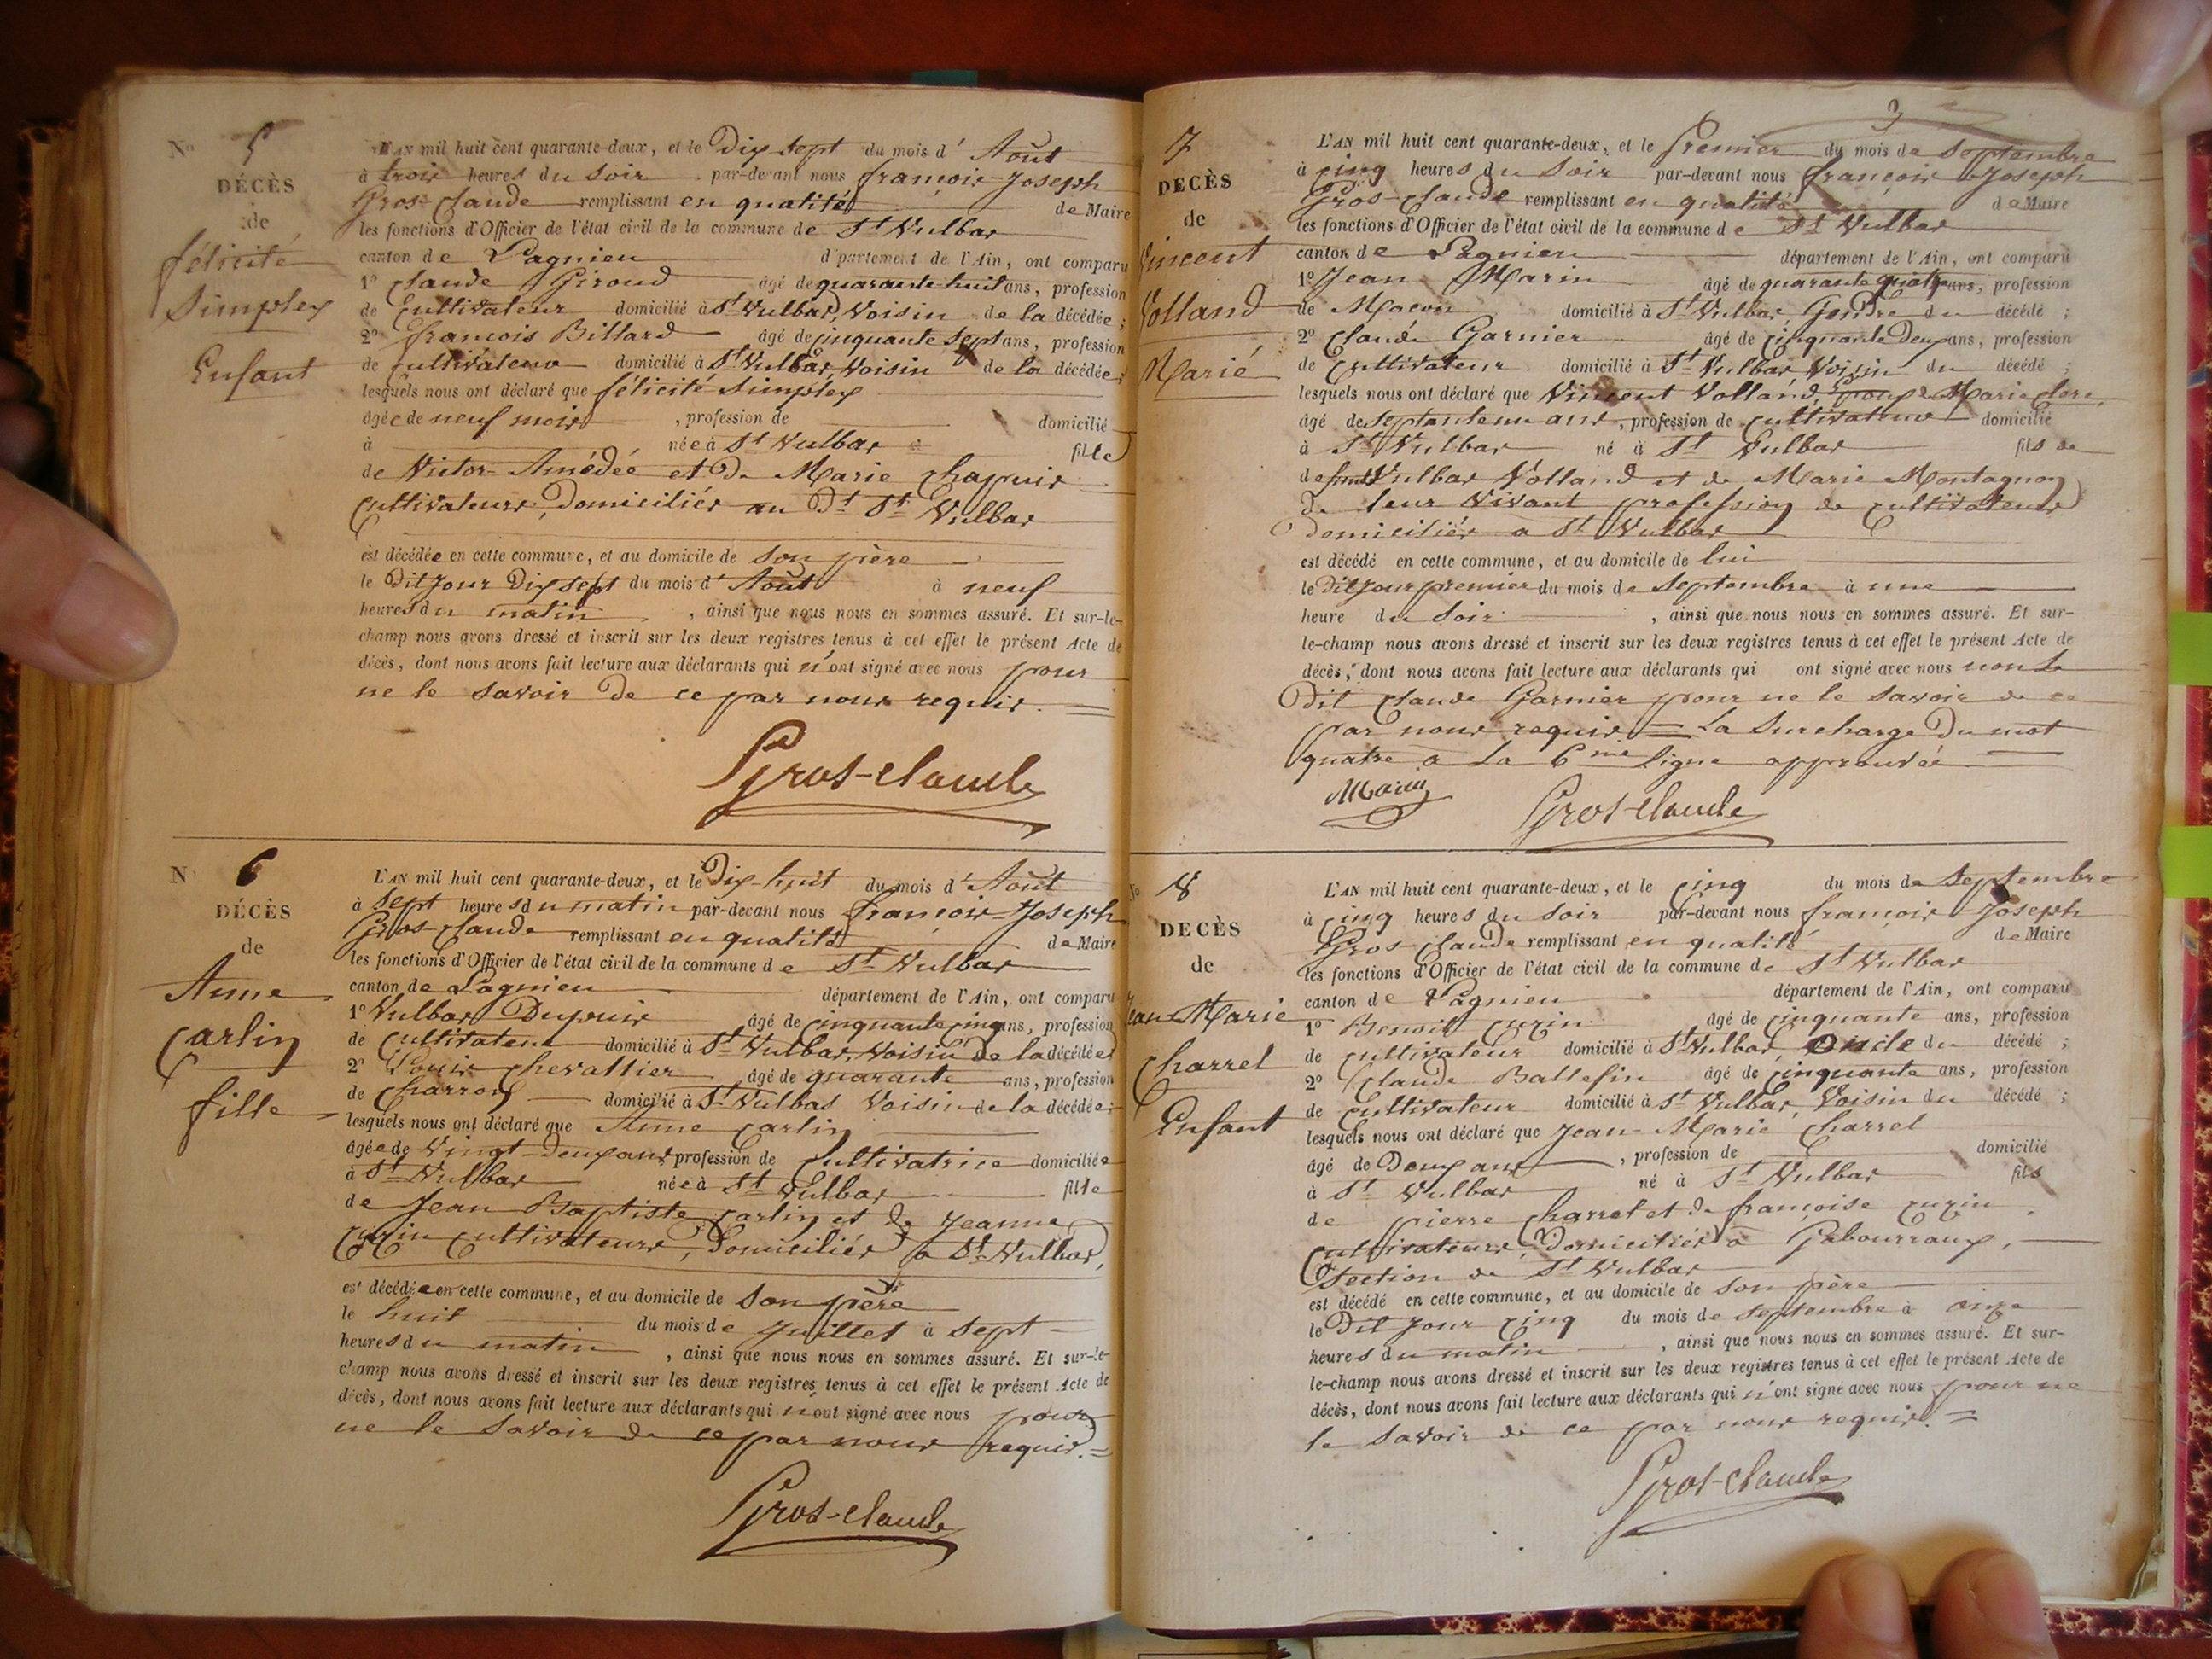 No 5
DÉCÈS
de
félicité
Simplex
Enfant
L'AN mil huit cent quarante-deux, et le Dix sept du mois d'Août
à trois heures du soir par-devant nous françois-Joseph
Gros-Claude remplissant en qualité de Maire
les fonctions d'Officier de l'état civil de la commune de St Vulbas
canton de Lagnieu département de l'Ain, ont comparu
1º Claude Giroud âgé de quarante-huit ans, profession
de Cultivateur domicilié à St Vulbas, Voisin de la décédée ;
2º françois Billard âgé de cinquante Sept ans, profession
de cultivateur domicilié à St Vulbas, Voisin de la décédée ;
lesquels nous ont déclaré que félicité Simplex
âgée de neuf mois , profession de domicilié
à née à St Vulbas fille
de Victor-Amédée et de Marie Chapuis
Cultivateurs, Domiciliés au Dt St Vulbas
est décédée en cette commune, et au domicile de son père
le dit Jour Dix sept du mois d'Août à neuf
heures du matin , ainsi que nous nous en sommes assuré. Et sur-le-
champ nous avons dressé et inscrit sur les deux registres tenus à cet effet le présent Acte de
décès, dont nous avons fait lecture aux déclarants qui n'ont signé avec nous pour
ne le savoir de ce par nous requis. =
Gros-Claude
N 6
DÉCÈS
de
Anne
Carlin
fille
L'AN mil huit cent quarante-deux, et le Dix-huit du mois d'Août
à sept heures du matin par-devant nous françois-Joseph
Gros-Claude remplissant en qualité de Maire
les fonctions d'Officier de l'état civil de la commune de St Vulbas
canton de Lagnieu département de l'Ain, ont comparu
1º Vulbas Dupuis âgé de cinquante cinq ans, profession
de Cultivateur domicilié à St Vulbas, Voisin de la décédée
2º Louis Chevallier âgé de quarante ans, profession
de Charron domicilié à St Vulbas Voisin de la décédée ;
lesquels nous ont déclaré que Anne Carlin
âgée de Vingt-Deux ans, profession de Cultivatrice domiciliée
à St Vulbas née à St Vulbas fille
de Jean Baptiste Carlin et de Jeanne
Cuzin Cultivateurs, Domiciliés à St Vulbas,
est décédée en cette commune, et au domicile de son père
le huit du mois de Juillet à sept
heures du matin , ainsi que nous nous en sommes assuré. Et sur-le-
champ nous avons dressé et inscrit sur les deux registres tenus à cet effet le présent Acte de
décès, dont nous avons fait lecture aux déclarants qui n'ont signé avec nous pour
ne le savoir de ce par nous requis. =
Gros-Claude
3
7
DÉCÈS
de
Vincent
Volland
Marié
L'AN mil huit cent quarante-deux, et le Premier du mois de Septembre
à cinq heures du Soir par-devant nous françois Joseph
Gros-Claude remplissant en qualité de Maire
les fonctions d'Officier de l'état civil de la commune de St Vulbas
canton de Lagnieu département de l'Ain, ont comparu
1º Jean Marin âgé de quarante quatre ans, profession
de Macon domicilié à St Vulbas, Gendre du décédé ;
2º Claude Garnier âgé de cinquante Deux ans, profession
de Cultivateur domicilié à St Vulbas Voisin du décédé ;
lesquels nous ont déclaré que Vincent Volland, Epoux de Marie Clerc,
âgé de Septante un ans, profession de Cultivateur domicilié
à St Vulbas né à St Vulbas fils de
de Vulbas Volland et de Marie Montagnon
de leur Vivant profession de cultivateurs
Domiciliés à St Vulbas
est décédé en cette commune, et au domicile de lui
le Dit Jour premier du mois de Septembre à une
heure du Soir , ainsi que nous nous en sommes assuré. Et sur-
le-champ nous avons dressé et inscrit sur les deux registres tenus à cet effet le présent Acte de
décès, dont nous avons fait lecture aux déclarants qui ont signé avec nous non le
Dit Claude Garnier pour ne le savoir de ce
par nous requis = La Surcharge Du mot
quatre à La 6me ligne approuvée
Marin Gros-Claude
No 8
DÉCÈS
de
Jean-Marie
Charrel
Enfant
L'AN mil huit cent quarante-deux, et le cinq du mois de Septembre
à cinq heures du Soir par-devant nous françois Joseph
Gros-Claude remplissant en qualité de Maire
les fonctions d'Officier de l'état civil de la commune de St Vulbas
canton de Lagnieu département de l'Ain, ont comparu
1º Benoit Cuzin âgé de cinquante ans, profession
de cultivateur domicilié à St Vulbas, Oncle du décédé ;
2º Claude Ballefin âgé de cinquante ans, profession
de Cultivateur domicilié à St Vulbas, Voisin du décédé ;
lesquels nous ont déclaré que Jean-Marie Charrel
âgé de Deux ans , profession de domicilié
à St Vulbas né à St Vulbas fils
de pierre Charrel et de françoise Cuzin
Cultivateurs, Domiciliés à Gabourraux,
Section de St Vulbas
est décédé en cette commune, et au domicile de son père
le Dit Jour cinq du mois de Septembre à onze
heures du matin , ainsi que nous nous en sommes assuré. Et sur-
le-champ nous avons dressé et inscrit sur les deux registres tenus à cet effet le présent Acte de
décès, dont nous avons fait lecture aux déclarants qui n'ont signé avec nous pour ne
le savoir de ce par nous requis. =
Gros-Claude